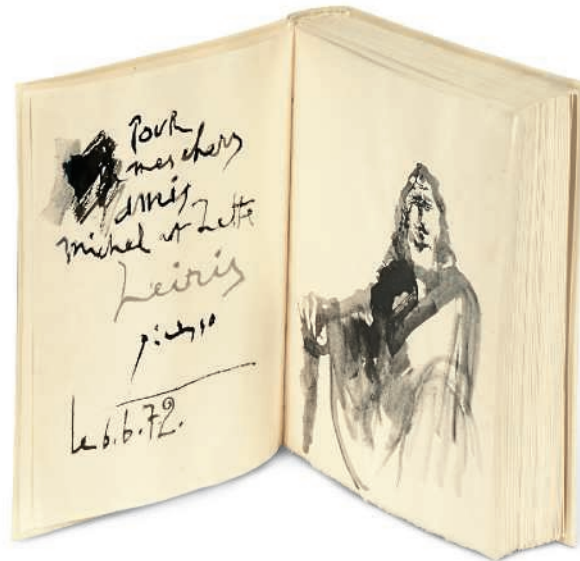 Pour
mes chers
amis
Michel et Zette
Leiris
Picasso
le 6.6.72.